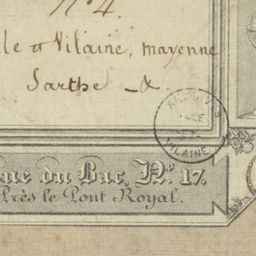 N° 4.
lle et Vilaine, mayenne
Sarthe _&.
VILAINE
Rue du Bac, N° 17.
Près le Pont Royal.